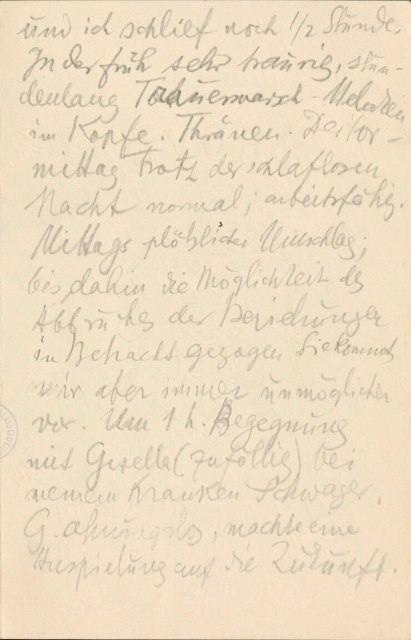 und ich schlief noch 1/2 Stunde.
In der früh sehr traurig, stun-
denlang Trauermarsch-Melodien
im Kopfe. Thränen. Der Vor-
mittag trotz der schlaflosen
Nacht normal; arbeitsfähig.
Mittags plötzlicher Umschlag;
bis dahin die Möglichkeit des
Abbruches der Beziehungen
in Betracht gezogen. Sie kommt
mir aber immer unmöglicher
vor. Um 1 h. Begegnung
mit Gisella (zufällig) bei
meinem kranken Schwager.
G. ahnungslos, machte eine
Anspielung auf die Zukunft.